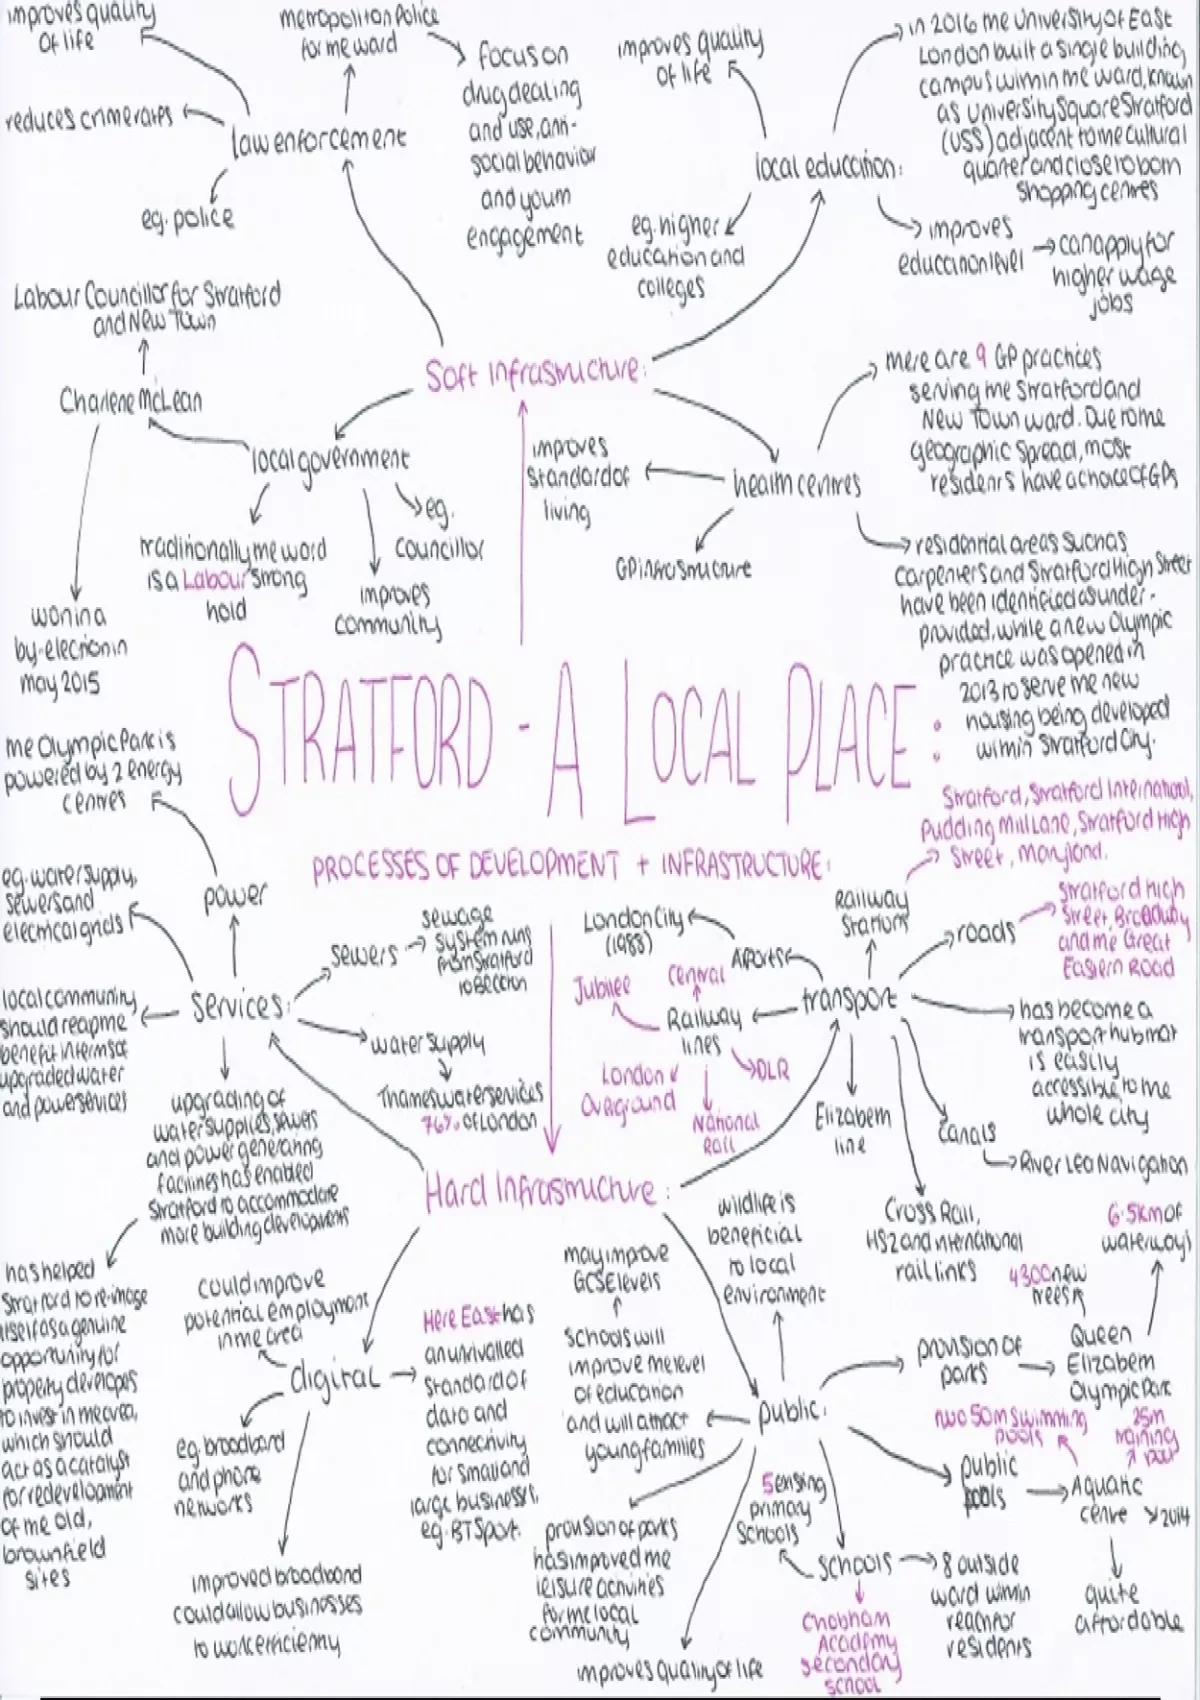 improves quality
of life
reduces crime rates
law enforcement
eg. police
metropolitan Police
for the ward
focus on
drug dealing
and use, anti-
social behavior
and youth
engagement
improves quality
of life
local education:
eg. higher
education and
colleges
in 2016 the University of East
London built a single building
campus within the ward, known
as University Square Stratford
(USS) adjacent to the cultural
quarter and close to both
shopping centres
improves
education level
can apply for
higher wage
jobs
Soft Infrastructure:
Labour Councillor for Stratford
and New Town
Charlene McLean
won in a
by-election in
may 2015
local government
traditionally the ward
is a Labour strong
hold
improves
community
eg.
councillor
health centres
improves
standard of
living
GP infrastructure
there are 9 GP practices
serving the Stratford and
New Town ward. Due to the
geographic spread, most
residents have a choice of GPs
residential areas such as
Carpenters and Stratford High Street
have been identified as under-
provided, while a new Olympic
practice was opened in
2013 to serve the new
housing being developed
within Stratford City.
STRATFORD - A LOCAL PLACE:
PROCESSES OF DEVELOPMENT + INFRASTRUCTURE:
the Olympic Park is
powered by 2 energy
centres
power
eg. water supply,
sewers and
electrical grids
services:
local community
should reap the
benefit in terms of
upgraded water
and power services
sewers
sewage
system runs
from Stratford
to Beckton
water supply
Thames water services
76% of London
upgrading of
water supplies, sewers
and power generating
facilities has enabled
Stratford to accommodate
more building developments
has helped
Stratford to re-image
itself as a genuine
opportunity for
property developers
to invest in the area,
which should
act as a catalyst
for redevelopment
of the old,
brownfield
sites
Hard Infrastructure:
transport
Airports
London City
(1988)
Railway
lines
Jubilee
Central
London
Overground
National
Rail
DLR
Railway
Stations
Stratford, Stratford International,
Pudding Mill Lane, Stratford High
Street, Maryland.
roads
Stratford High
Street, Broadway
and the Great
Eastern Road
has become a
transport hub that
is easily
accessible to the
whole city
Elizabeth
line
Canals
River Lea Navigation
Cross Rail,
HS2 and international
rail links
digital
could improve
potential employment
in the area
eg. broadband
and phone
networks
improved broadband
could allow businesses
to work efficiently
Here East has
an unrivalled
standard of
data and
connectivity
for small and
large businesses,
eg. BT Sport.
public:
wildlife is
beneficial
to local
environment
may improve
GCSE levels
schools will
improve the level
of education
and will attract
young families
provision of parks
has improved the
leisure activities
for the local
community
improves quality of life
schools
5 existing
primary
schools
Chobham
Academy
secondary
school
8 outside
ward within
reach for
residents
provision of
parks
Queen
Elizabeth
Olympic Park
4300 new
trees
6.5km of
waterways
public
pools
Aquatic
centre
two 50m swimming
pools
25m
training
pool
2014
quite
affordable